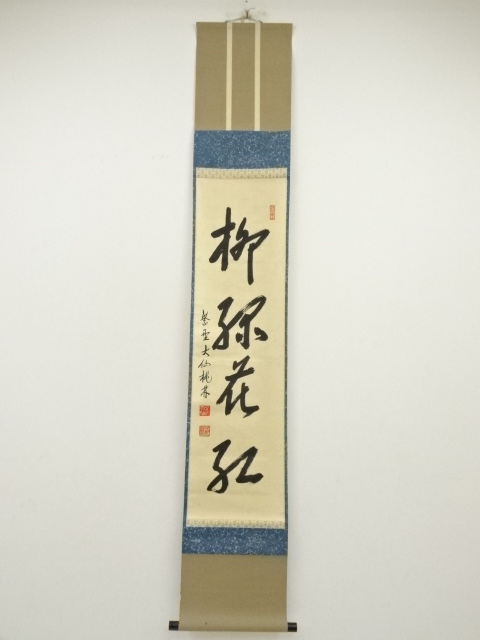 柳緑花紅
紫野大仙桃林